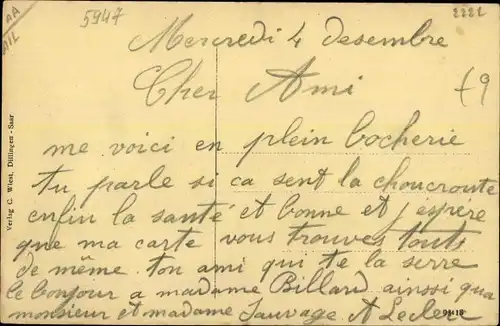 AA
AIL
5947
2221
Mercredi 4 desembre
Cher Ami
f9
me voici en plein bocherie
tu parle si ca sent la choucroute
enfin la santé et bonne et j'espère
que ma carte vous trouves touts
de même. ton ami qui te la serre
le bonjour a madame Billard ainsi qua
monsieur et madame Sauvage A Leclerc
Verlag C. Wiest, Dillingen - Saar
9418